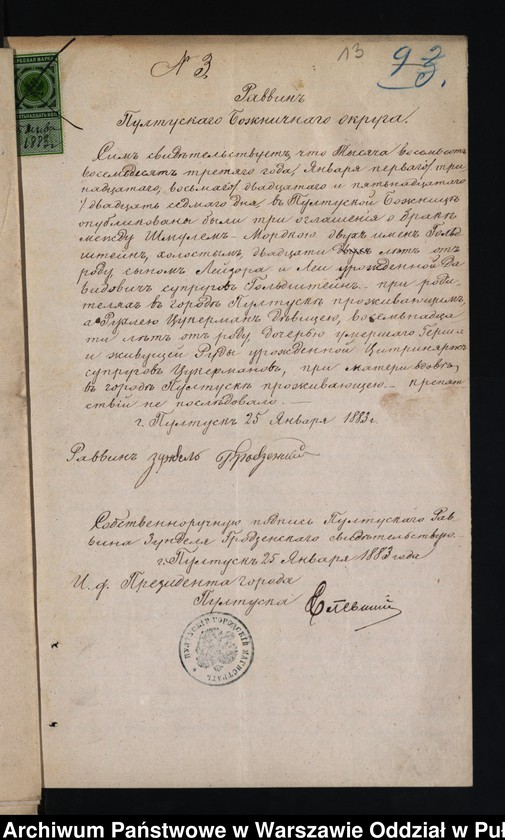 № 3
13
92
3.
Раввинъ
Пултускаго Божничнаго округа.
Симъ свидѣтельствуетъ, что тысяча восемьсотъ
восемьдесятъ третяго года, Января перваго/три
надцатаго, восьмаго/двадцатаго и пятьнадцатаго
/двадцать седьмаго дня, въ Пултуской Божницѣ
опубликованы были три оглашенія о бракѣ
между Шмулемъ-Мордкою двухъ именъ Гольд
штейнъ, холостымъ, двадцати лѣтъ отъ
роду сыномъ Лейзора и Леи урожденной Да
видовичъ супруговъ Гольдштейнъ - при роди
теляхъ въ городѣ Пултускѣ проживающимъ,
а Рухлею Цукерманъ дѣвицею, восемьнадца
ти лѣтъ отъ роду дочерью умершаго Герша
и живущей Руды урожденной Цитринярж
супруговъ Цукермановъ, при матери вдовѣ,
въ городѣ Пултускѣ проживающею - препят
ствій не послѣдовало. —
г. Пултускъ 25 Января 1883 г.
Раввинъ
Собственноручную подпись Пултускаго Рав
вина Зунделя Гродзенскаго свидѣтельствую.
г. Пултускъ 25 Января 1883 года
И. ф. Президента города
Пултуска
ПУЛТУСКІЙ ГОРОДСКІЙ МАГИСТРАТЪ
Archiwum Państwowe w Warszawie Oddział w Puł